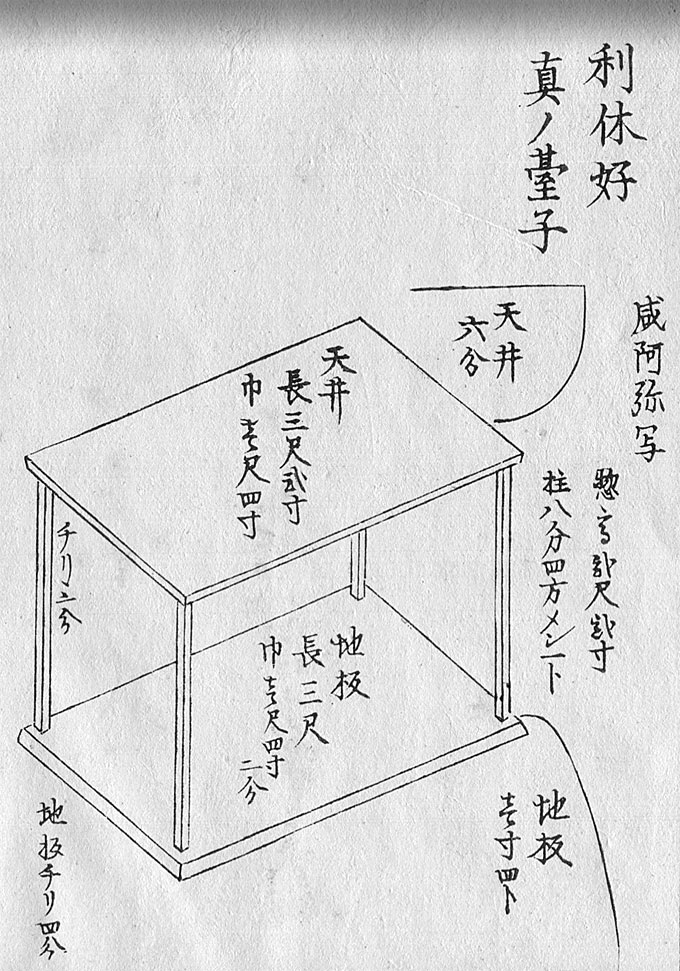 利休好
真ノ臺子
咸阿弥写
天井
六分
惣高弐尺弐寸
柱八分四方メン一ト
天井
長三尺弐寸
巾壱尺四寸
チリ二分
地板
長三尺
巾壱尺四寸
二分
地板
壱寸四ト
地板チリ四分